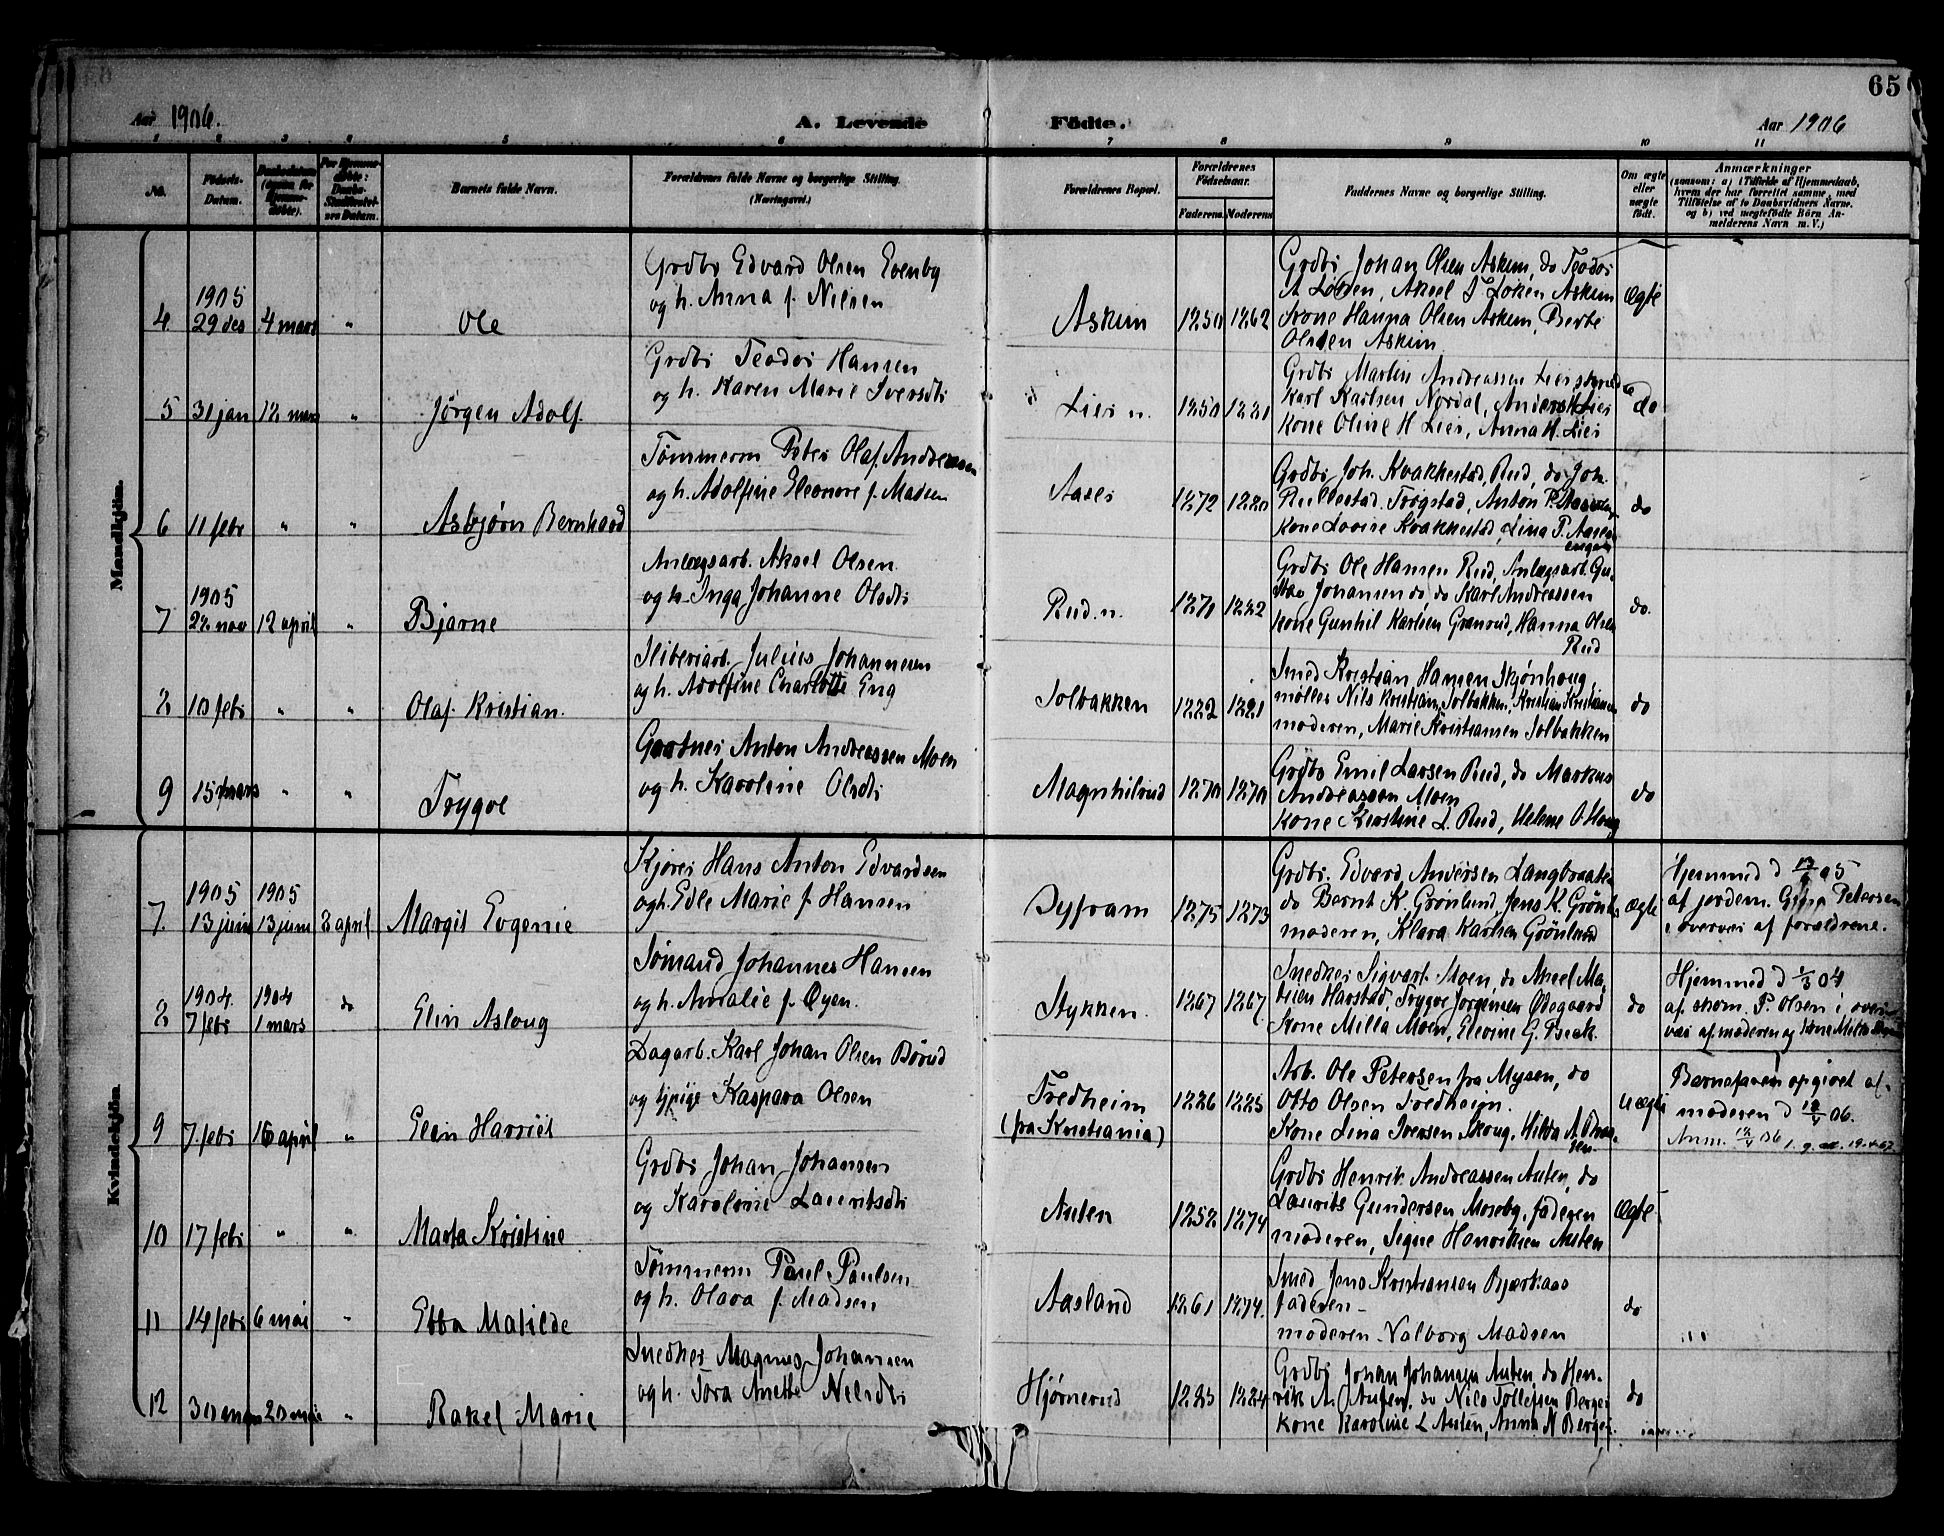 65
Aar 1906.
A. Levende Födte.
Aar 1906
1 2 3 4 5 6 7 8 9 10 11
No.
Födsels-
Datum.
Barnets fulde Navn.
Forældrenes fulde Navne og borgerlige Stilling.
(Næringsvei.)
Forældrenes Bopæl.
Forældrenes
Födselsaar.
Faderens. Moderens.
Faddernes Navne og borgerlige Stilling.
Om ægte
eller
uægte
födt.
Anmærkninger
(saasom: a) i Tilfælde af Hjemmedaab,
hvem der har forrettet samme, med
Tilföielse af to Daabsvidners Navne.
og b) ved uegtefödte Börn An-
melderens Navn m. V.)
Mandkjön.
4
1905
29 des
4 mars
"
Ole
Grdbr Edvard Olsen Evenby
og h. Anna f. Nilsen
Askim
1850
1862
Grdbr Johan Olsen Askim, do Teodor
A Løken, Aksel T Løken Askim
Kone Hanna Olsen Askim, Berte
Olsen Askim
Ægte
5
31 jan
12 mars
"
Jørgen Adolf
Grdbr Teodor Hansen
og h. Karen Marie Iversdtr
Lier n.
1850
1881
Grdbr Martin Andreassen Lier
Karl Karlsen Nordal, Anders H Lier
Kone Oline H Lier, Anna H. Lier
do
6
11 febr
"
"
Asbjørn Bernhard
Tømmerm Peter Olaf Andreassen
og h. Adolfine Eleonore f. Madsen
Aaser
1872
1880
Grdbr Joh. Kvakkestad, Rud, do Joh.
Rullestad Trøgstad, Anton P.
Kone Lovise Kvakkestad, Lina P.
do
7
1905
22 nov
12 april
"
Bjarne
Anlægsarb. Aksel Olsen
og h Inga Johanne Olsdtr
Rud. n.
1871
1882
Grdbr Ole Hansen Rud, Anlægsarb Gu-
stav Johansen do do Karl Andreassen
Kone Gunhil Karlsen Granrud, Hanna Olsen
Rud
do.
8
10 febr
"
"
Olaf Kristian.
Sliberiarb. Julius Johannesen
og h. Adolfine Charlotte Eng
Solbakken
1882
1881
Smed Kristian Hansen Skjønhaug,
møller Nils Kristian Solbakken, Kristian Kristiansen
moderen, Marie Kristiansen Solbakken
do
9
15 mars
"
"
Trygve
Gartner Anton Andreassen Moen
og h. Karoline Olsdtr
Magnhilrud
1870
1870
Grdbr Emil Larsen Rud, do Markus
Andreassen Moen
Kone Kirstine L. Rud, Helene O Haug
do
Kvindekjön.
7.
1905
13 juni
1905
13 juni
8 april
Margit Evgenie
Kjører Hans Anton Edvardsen
og h. Edle Marie f. Hansen
Dyfram
1875
1873
Grdbr. Edvard Andersen Langbraaten
do Bernt K. Grønlund, Jens K. Grønl
moderen, Klara Karlsen Grønlund
ægte
Hjemmed d
af jordem. Gina Petersen
i overvær af forældrene.
8
1904.
7 febr
1904
1 mars
do
Elin Aslaug
Sømand Johannes Hansen
og h. Amalie f. Øyen.
Stykken.
1867
1867.
Snedker Sigvart Moen, do Aksel Ma-
tisen Harstad, Trygve Jørgensen Ødegaard
Kone Milla Moen, Elevine G. Beck.
do
Hjemmed d 1/3 04
af skom. P. Olsen i over-
vær af moderen og Kone
9
7. febr
16 april
"
Elin Harriet
Dagarb. Karl Johan Olsen Børud
og tjpige Kaspara Olsen
Fredheim
(fra Kristiania)
1886
1885
Arb. Ole Petersen fra Mysen, do
Otto Olsen Fredheim.
Kone Lina Iversen Skoug, Hilda A
uægte
Barnefaren opgivet af
moderen d 18/4 06.
Anm. 18/4 06
10
17 febr
"
"
Marta Kristine
Grdbr Johan Johansen
og Karoline Lauritsdtr
Auten
1852
1874
Grdbr Henrik Andreassen Auten, do
Laurits Gundersen Moseby, faderen
moderen, Signe Henriksen Auten
Ægte
11
14 febr
6 mai
"
Ebba Matilde
Tømmerm Paul Paulsen
og h. Olava f. Madsen
Aasland
1861
1874.
Smed Jens Kristiansen Bjerkaas
faderen-
moderen - Valborg Madsen
do
12
30 mars
20 mai
"
Rakel Marie
Snedker Magnus Johansen
og h. Tora Anette Nilsdtr
Hjørnerud
1885
1884
Grdbr Johan Johansen Auten, do Hen-
rik A. Auten, do Nils Tollefsen Berger
Kone Karoline L Auten, Anna N Berger.
do